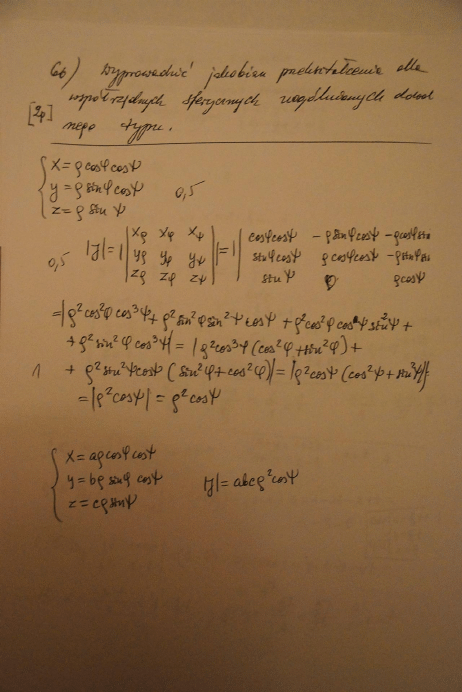 6b) Wyprowadzić jakobian przekształcenia dla
współrzędnych sferycznych uogólnionych
[2p] nego typu.
x = ρ cosφ cosψ
y = ρ sinφ cosψ 0,5
z = ρ sin ψ
0,5 |J| = | |xρ xφ xψ| |yρ yφ yψ| |zρ zφ zψ| | = | |cosφcosψ -ρsinφcosψ -ρcosφsin| |sinφcosψ ρcosφcosψ -ρsinφsin| |sinψ 0 ρcosψ|
= |ρ²cos²φ cos³ψ + ρ²sin²φ sin²ψ cosψ + ρ²cos²φ cosψ sin²ψ +
+ ρ²sin²φ cos³ψ| = |ρ²cos³φ (cos²φ + sin²φ) +
1 + ρ²sin²ψcosψ (sin²φ + cos²φ)| = |ρ²cosψ (cos²ψ + sin²ψ)| =
= |ρ²cosψ| = ρ²cosψ
x = aρ cosφ cosψ
y = bρ sinφ cosψ |J| = abcρ²cosψ
z = cρ sinψ